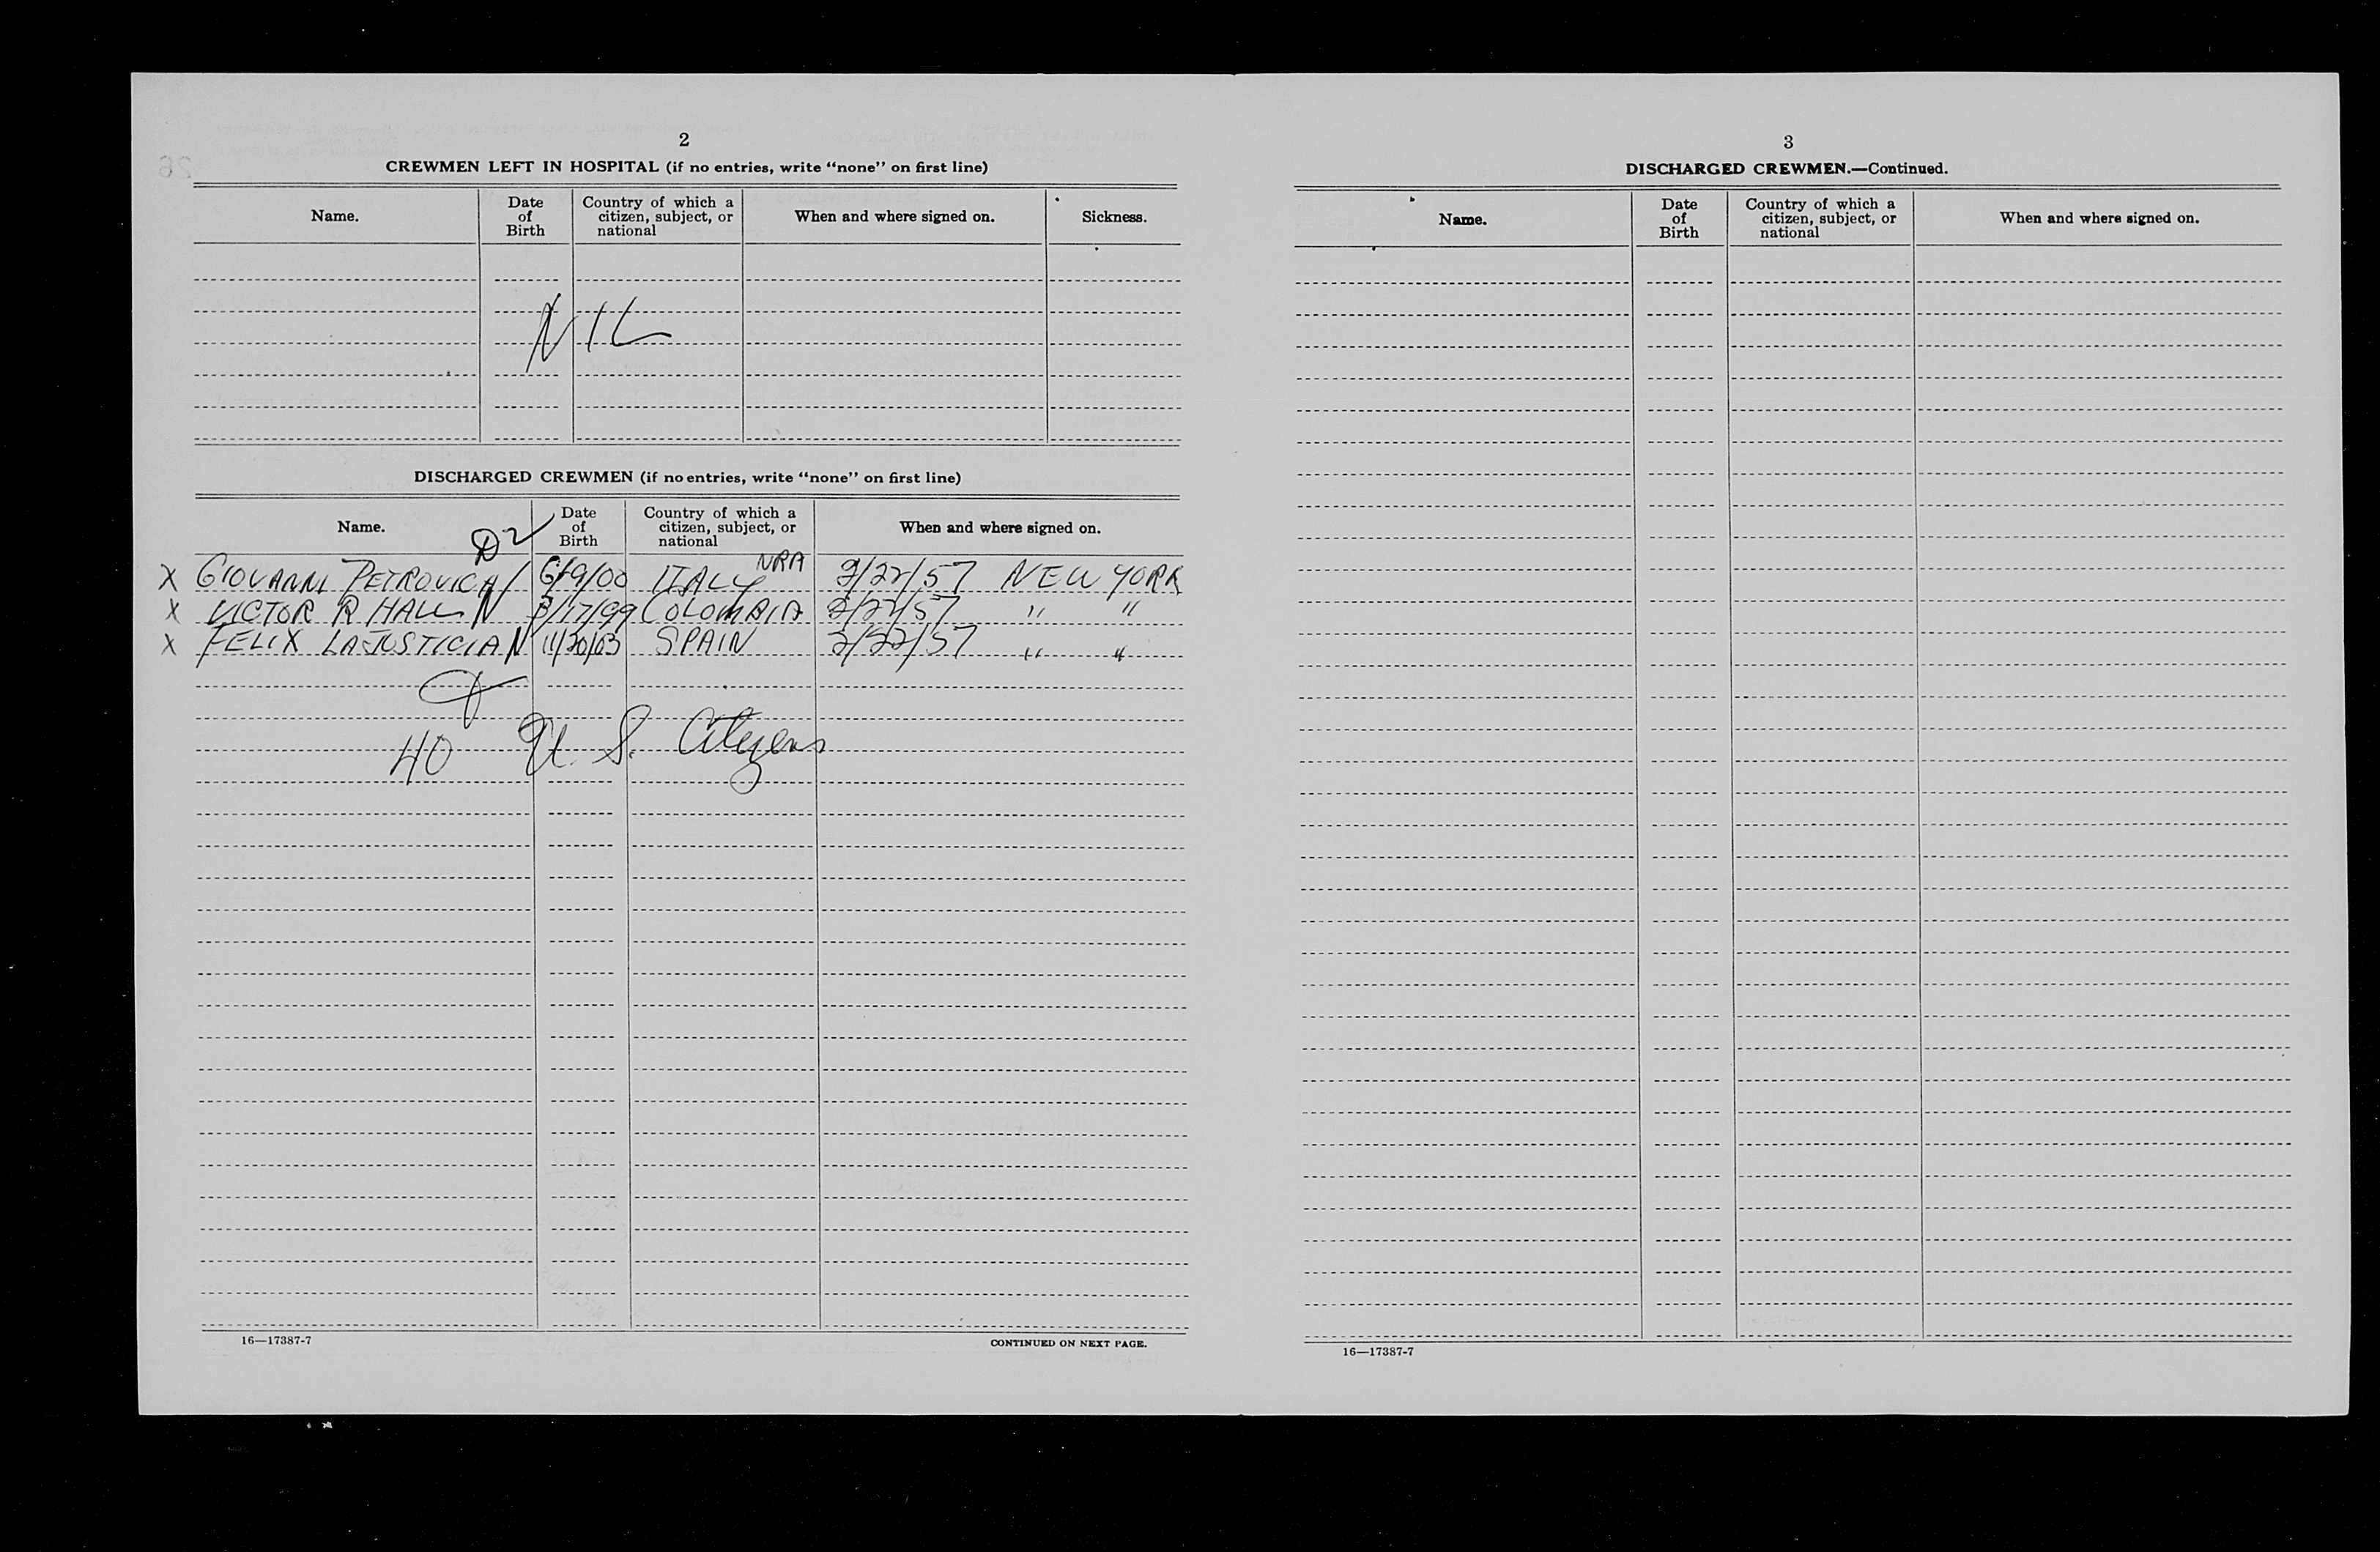 2
CREWMEN LEFT IN HOSPITAL (if no entries, write “none” on first line)
Name. Date of Birth Country of which a citizen, subject, or national When and where signed on. Sickness.
NIL
DISCHARGED CREWMEN (if no entries, write “none” on first line)
Name. Date of Birth Country of which a citizen, subject, or national When and where signed on.
D2
NRA
X GIOVANNI PETROVICH 6/9/00 ITALY 2/22/57 NEW YORK
X VICTOR R HALL N 3/17/99 COLOMBIA 2/22/57 " "
X FELIX LAJUSTICIA N 11/20/03 SPAIN 2/22/57 " "
40 U. S. Citizens
16—17387-7 CONTINUED ON NEXT PAGE.
3
DISCHARGED CREWMEN.—Continued.
Name. Date of Birth Country of which a citizen, subject, or national When and where signed on.
16—17387-7